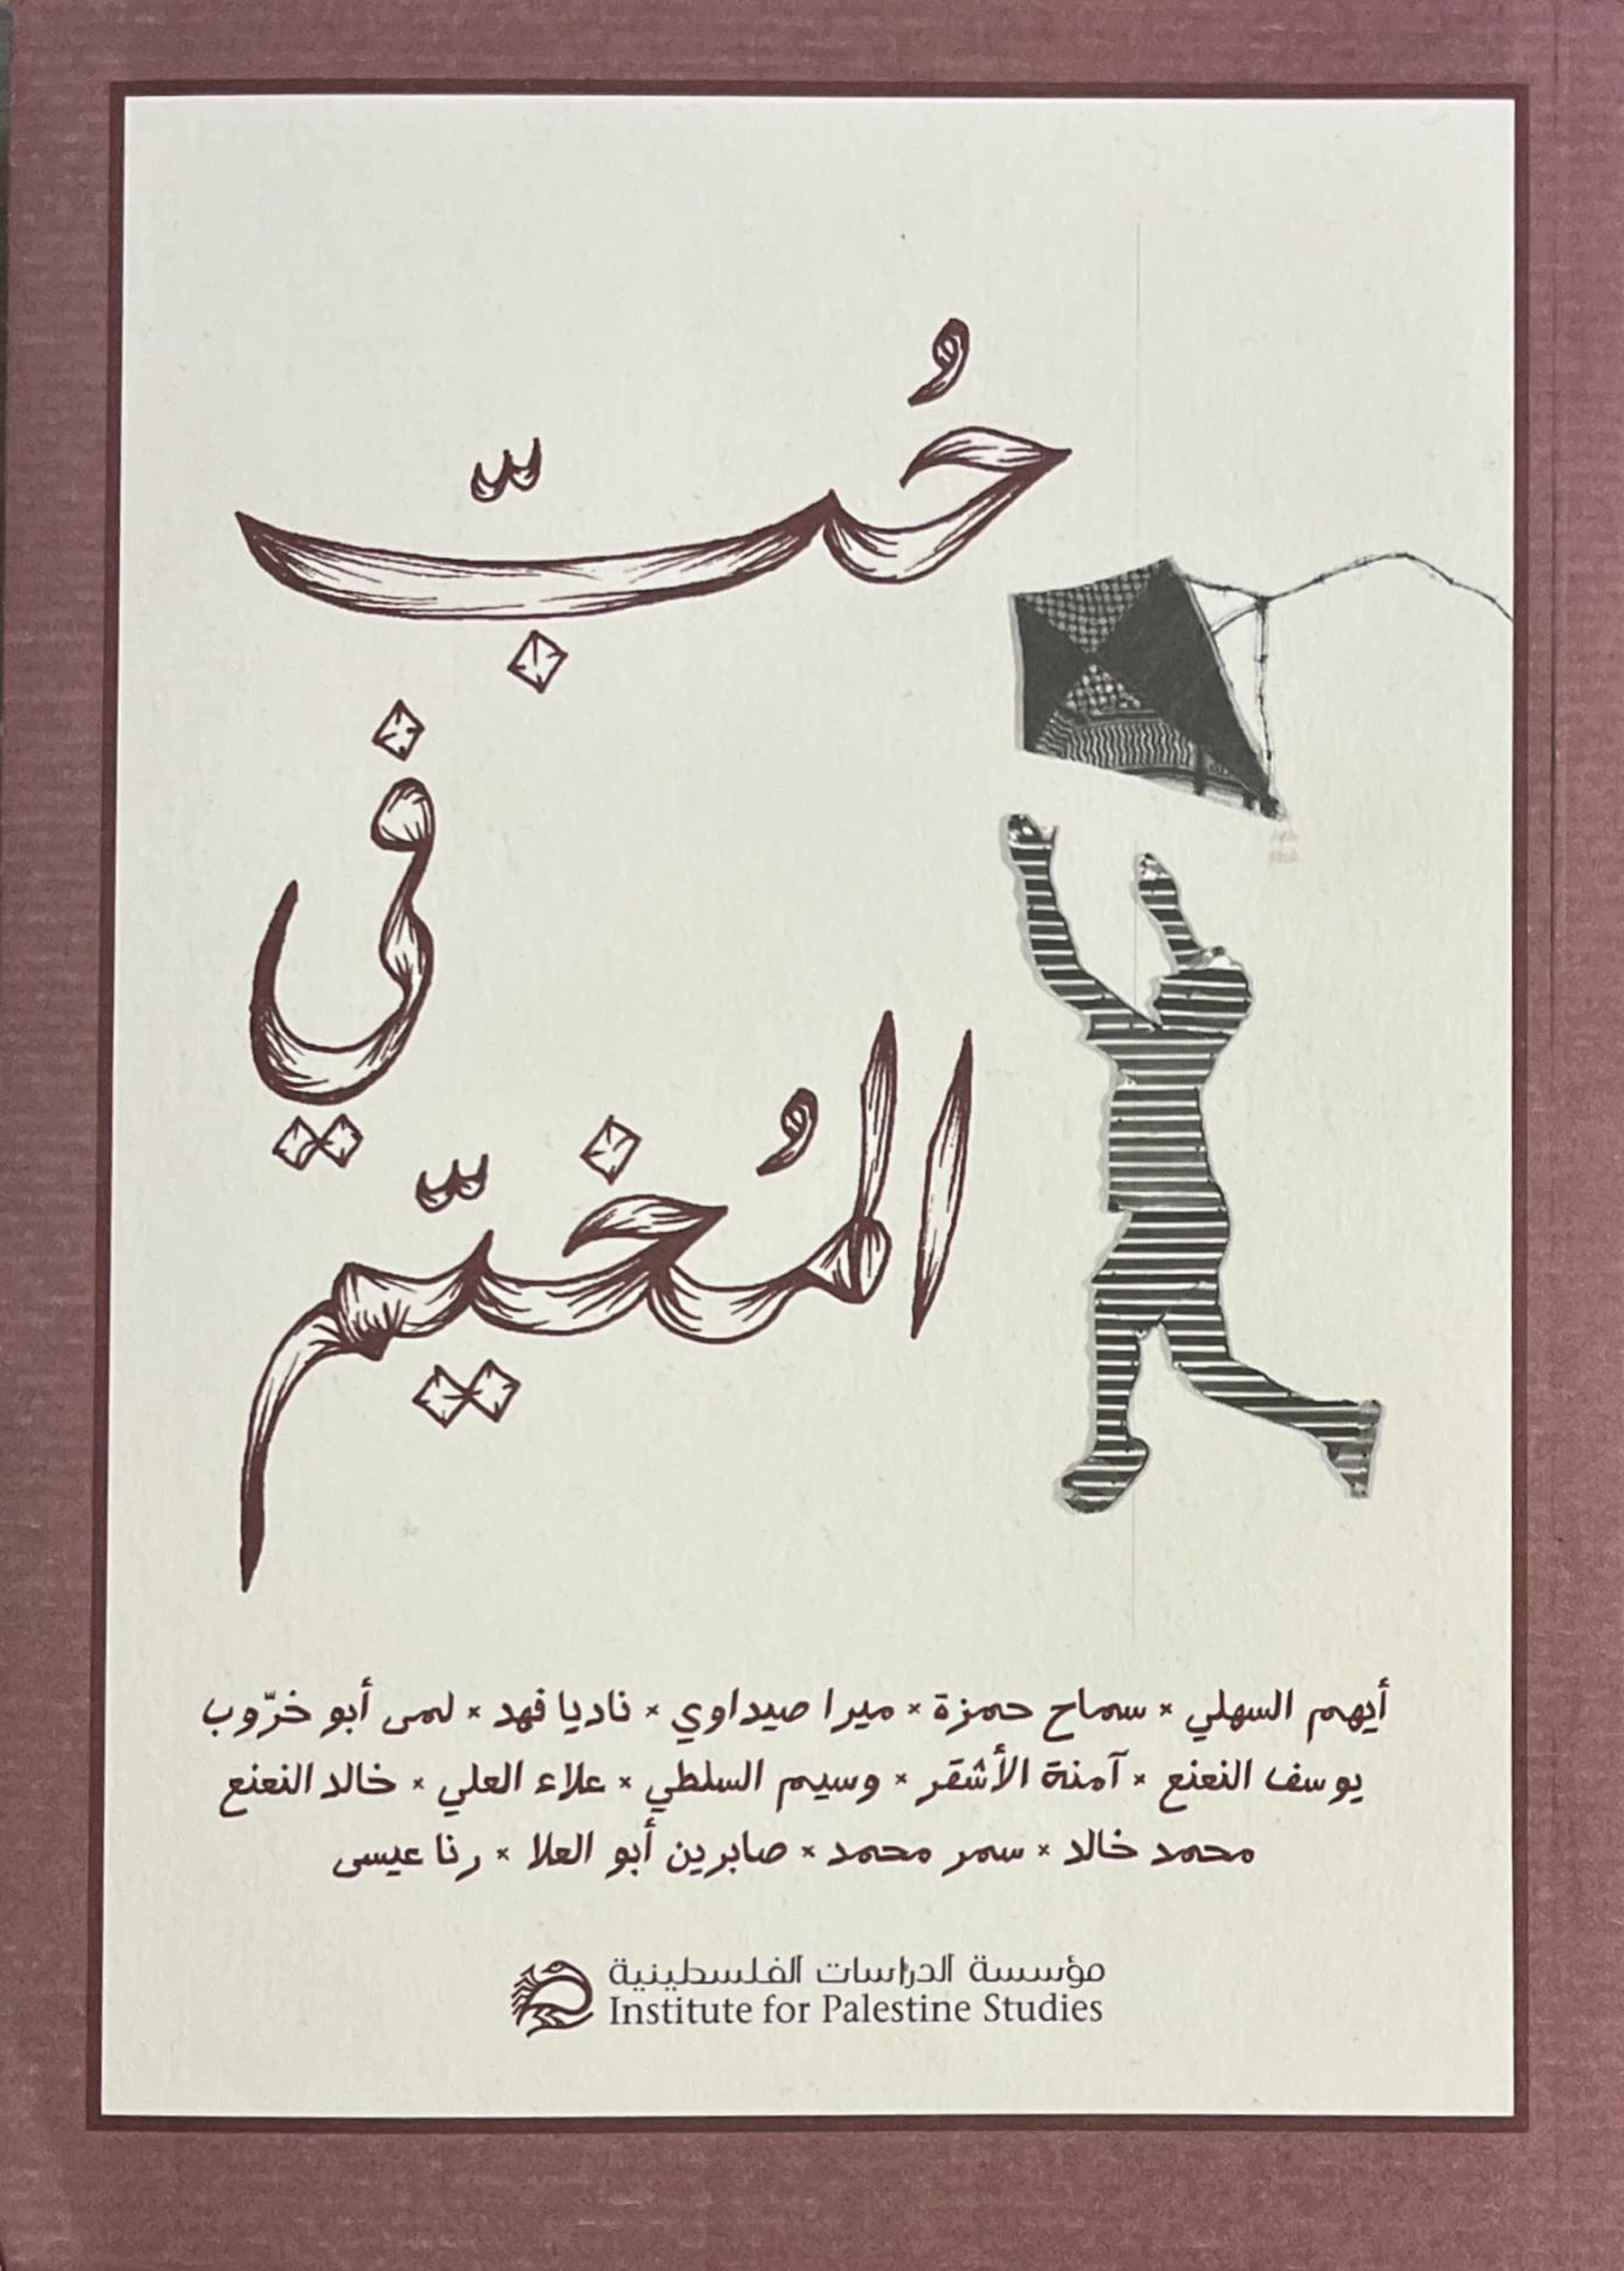 حُبّ
في
المُخيّم
أيهم السهلي × سماح حمزة × ميرا صيداوي × ناديا فهد × لمى أبو خرّوب
يوسف النعنع × آمنة الأشقر × وسيم السلطي × علاء العلي × خالد النعنع
محمد خالد × سمر محمد × صابرين أبو العلا × رنا عيسى
مؤسسة الدراسات الفلسطينية
Institute for Palestine Studies